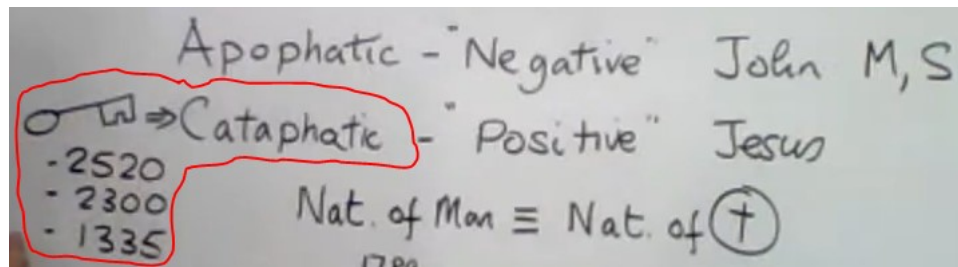 Apophatic - "Negative" John M, S
⇒ Cataphatic - "Positive" Jesus
- 2520
- 2300
- 1335
Nat. of Man ≡ Nat. of †